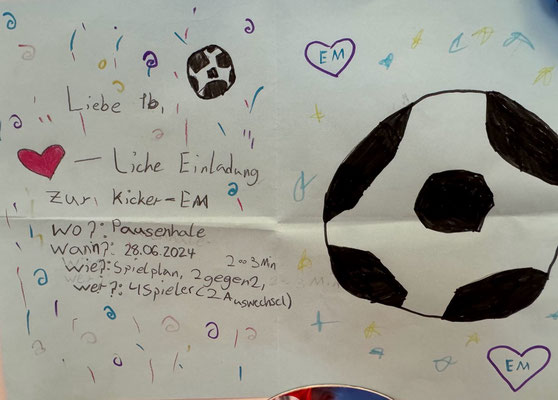 Liebe 1b,
Liche Einladung
zur Kicker-EM
Wo?: Pausenhale
Wann?: 28.06.2024
wie?: Spielplan, 2gegen2, 2∞3Min
wer?: 4Spieler(2Auswechsl)
EM
EM